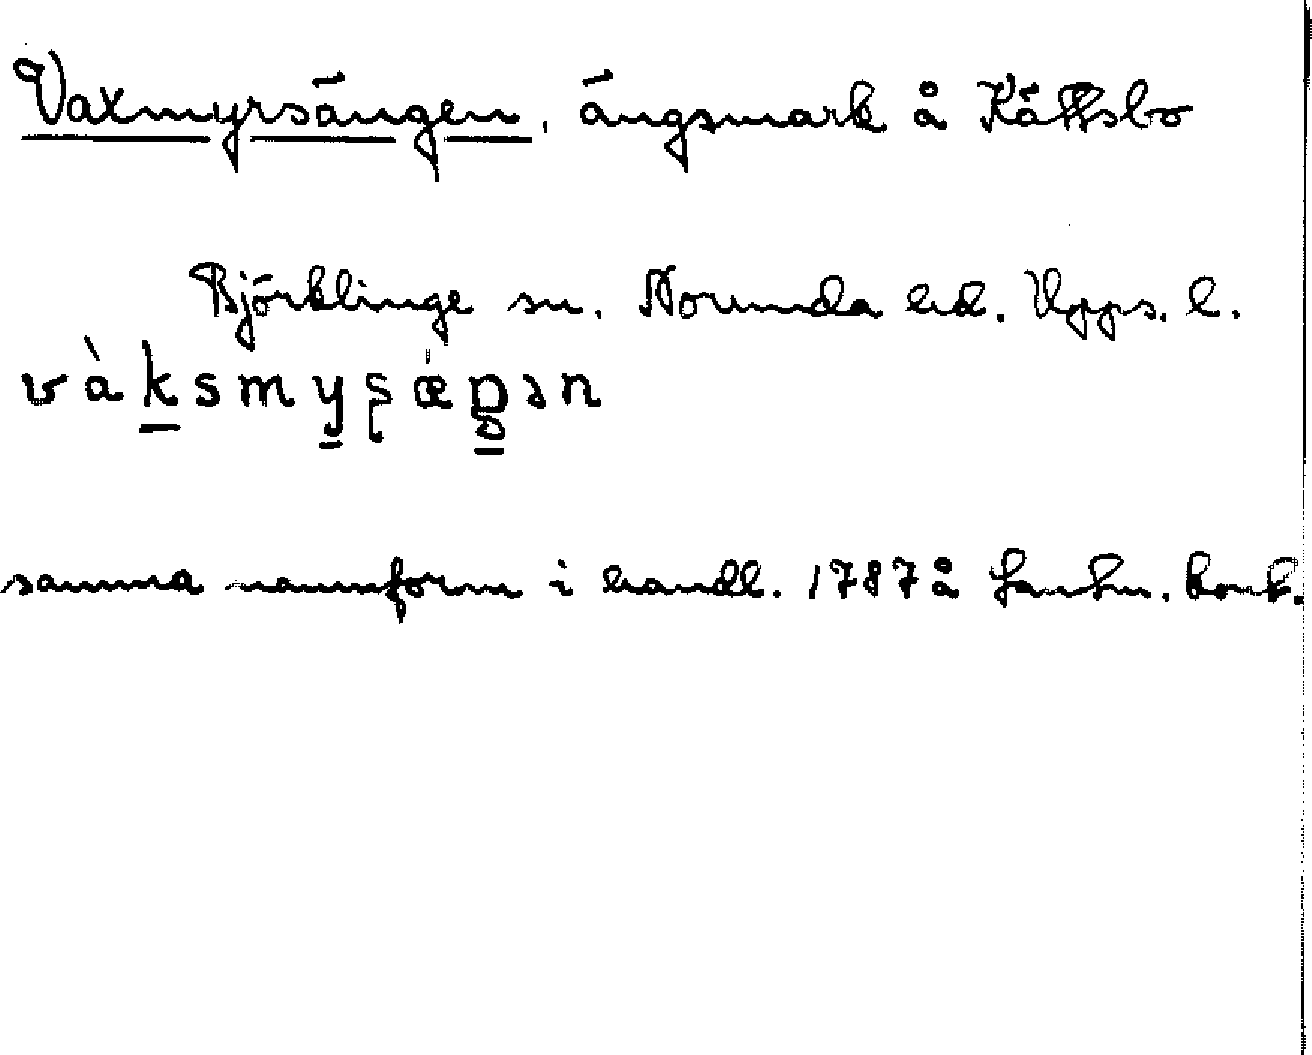 Vaxmyrsängen, ängsmark å Kättsbo
Björklinge sn. Norunda hd. Upps. l.
vàksmyṣǽgən
samma namnform i handl. 1787 å kont.